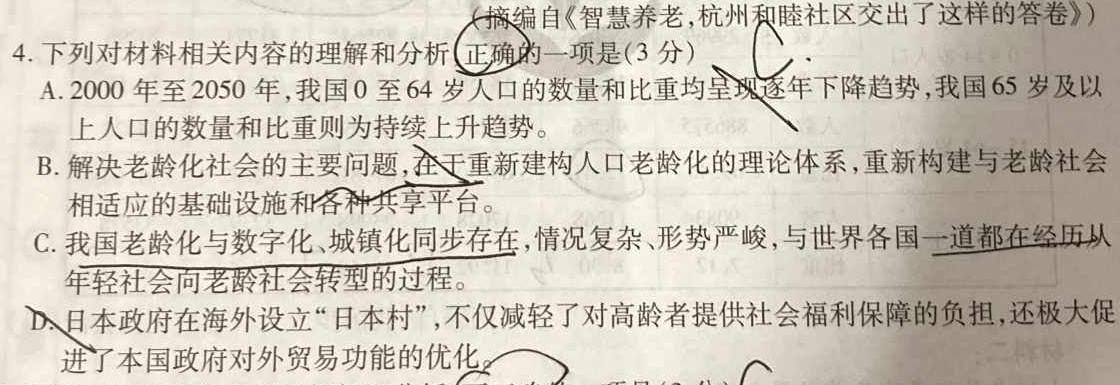 (摘编自《智慧养老,杭州和睦社区交出了这样的答卷》)
4. 下列对材料相关内容的理解和分析,正确的一项是(3 分) C.
A. 2000 年至 2050 年,我国 0 至 64 岁人口的数量和比重均呈现逐年下降趋势,我国 65 岁及以
上人口的数量和比重则为持续上升趋势。
B. 解决老龄化社会的主要问题,在于重新建构人口老龄化的理论体系,重新构建与老龄社会
相适应的基础设施和各种共享平台。
C. 我国老龄化与数字化、城镇化同步存在,情况复杂、形势严峻,与世界各国一道都在经历从
年轻社会向老龄社会转型的过程。
D. 日本政府在海外设立“日本村”,不仅减轻了对高龄者提供社会福利保障的负担,还极大促
进了本国政府对外贸易功能的优化。